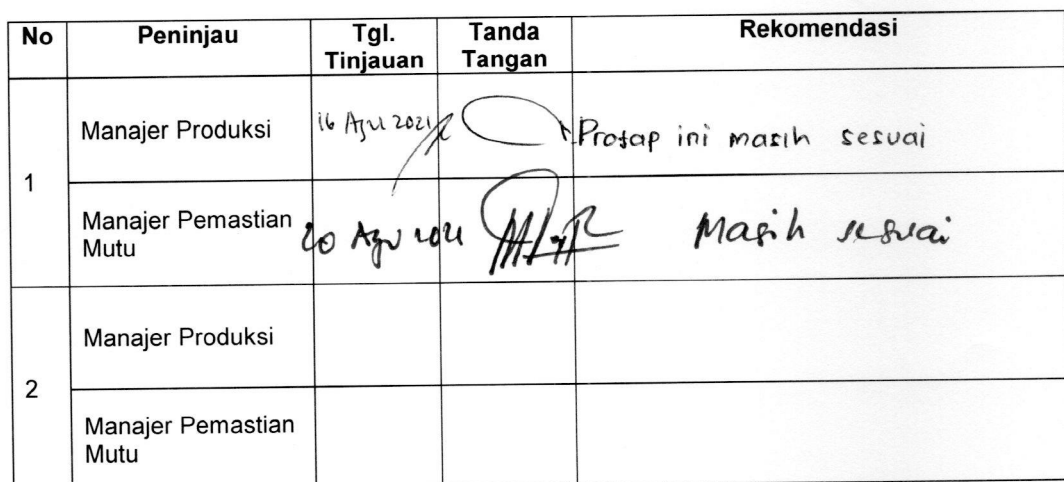 No Peninjau Tgl. Tinjauan Tanda Tangan Rekomendasi
1
Manajer Produksi 16 Agu 2021 Protap ini masih sesuai
Manajer Pemastian Mutu 20 Agu 2021 Masih sesuai
2
Manajer Produksi
Manajer Pemastian Mutu